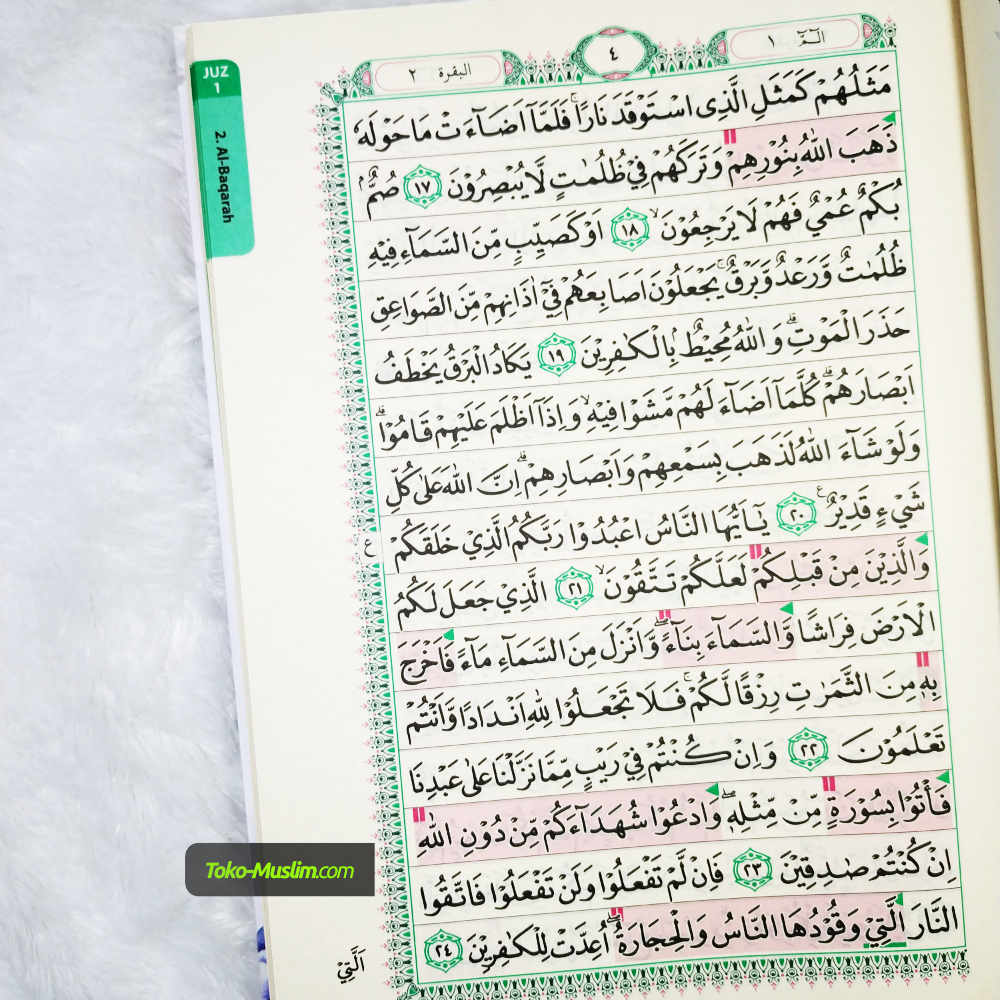 الٓمّٓ ١
٤
البقرة ٢
JUZ
1
2. Al-Baqarah
مَثَلُهُمْ كَمَثَلِ الَّذِى اسْتَوْقَدَ نَارًاۚ فَلَمَّآ اَضَاۤءَتْ مَا حَوْلَهٗ
ذَهَبَ اللّٰهُ بِنُوْرِهِمْ وَتَرَكَهُمْ فِيْ ظُلُمٰتٍ لَّا يُبْصِرُوْنَ ١٧ صُمٌّۢ
بُكْمٌ عُمْيٌ فَهُمْ لَا يَرْجِعُوْنَۙ ١٨ اَوْ كَصَيِّبٍ مِّنَ السَّمَاۤءِ فِيْهِ
ظُلُمٰتٌ وَّرَعْدٌ وَّبَرْقٌۚ يَجْعَلُوْنَ اَصَابِعَهُمْ فِيْٓ اٰذَانِهِمْ مِّنَ الصَّوَاعِقِ
حَذَرَ الْمَوْتِۗ وَاللّٰهُ مُحِيْطٌۢ بِالْكٰفِرِيْنَ ١٩ يَكَادُ الْبَرْقُ يَخْطَفُ
اَبْصَارَهُمْۗ كُلَّمَآ اَضَاۤءَ لَهُمْ مَّشَوْا فِيْهِۙ وَاِذَآ اَظْلَمَ عَلَيْهِمْ قَامُوْاۗ
وَلَوْ شَاۤءَ اللّٰهُ لَذَهَبَ بِسَمْعِهِمْ وَاَبْصَارِهِمْۗ اِنَّ اللّٰهَ عَلٰى كُلِّ
شَيْءٍ قَدِيْرٌ ٢٠ يٰٓاَيُّهَا النَّاسُ اعْبُدُوْا رَبَّكُمُ الَّذِيْ خَلَقَكُمْ
ع
وَالَّذِيْنَ مِنْ قَبْلِكُمْ لَعَلَّكُمْ تَتَّقُوْنَۙ ٢١ الَّذِيْ جَعَلَ لَكُمُ
الْاَرْضَ فِرَاشًا وَّالسَّمَاۤءَ بِنَاۤءًۖ وَّاَنْزَلَ مِنَ السَّمَاۤءِ مَاۤءً فَاَخْرَجَ
بِهٖ مِنَ الثَّمَرٰتِ رِزْقًا لَّكُمْۚ فَلَا تَجْعَلُوْا لِلّٰهِ اَنْدَادًا وَّاَنْتُمْ
تَعْلَمُوْنَ ٢٢ وَاِنْ كُنْتُمْ فِيْ رَيْبٍ مِّمَّا نَزَّلْنَا عَلٰى عَبْدِنَا
فَأْتُوْا بِسُوْرَةٍ مِّنْ مِّثْلِهٖۖ وَادْعُوْا شُهَدَاۤءَكُمْ مِّنْ دُوْنِ اللّٰهِ
اِنْ كُنْتُمْ صٰدِقِيْنَ ٢٣ فَاِنْ لَّمْ تَفْعَلُوْا وَلَنْ تَفْعَلُوْا فَاتَّقُوا
النَّارَ الَّتِيْ وَقُوْدُهَا النَّاسُ وَالْحِجَارَةُۖ اُعِدَّتْ لِلْكٰفِرِيْنَ ٢٤
اَلَّتِيْ
Toko-Muslim.com